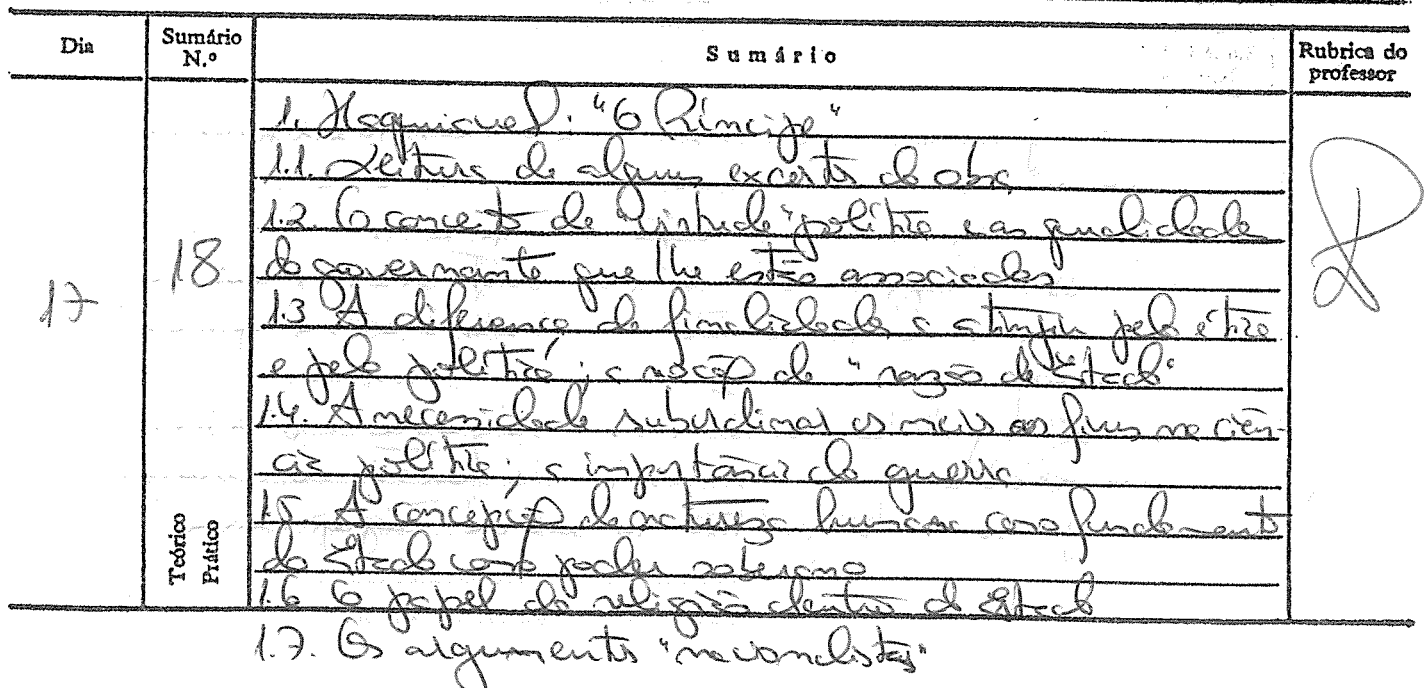 Dia
Sumário N.º
Sumário
Rubrica do professor
17
18
Teórico
Prático
1. Maquiavel. "O Príncipe"
1.1. Leitura de alguns excertos da obra
1.2. O conceito de "virtude" política e as qualidades
do governante que lhe estão associadas
1.3 A diferença de finalidades a atingir pela ética
e pela política; a noção de "razão de Estado"
1.4. A necessidade subordinar os meios aos fins na ciên-
cia política; a importância da guerra
1.5. A concepção de natureza humana como fundamento
do Estado como poder soberano
1.6 O papel da religião dentro do Estado
1.7. Os argumentos "nacionalistas"